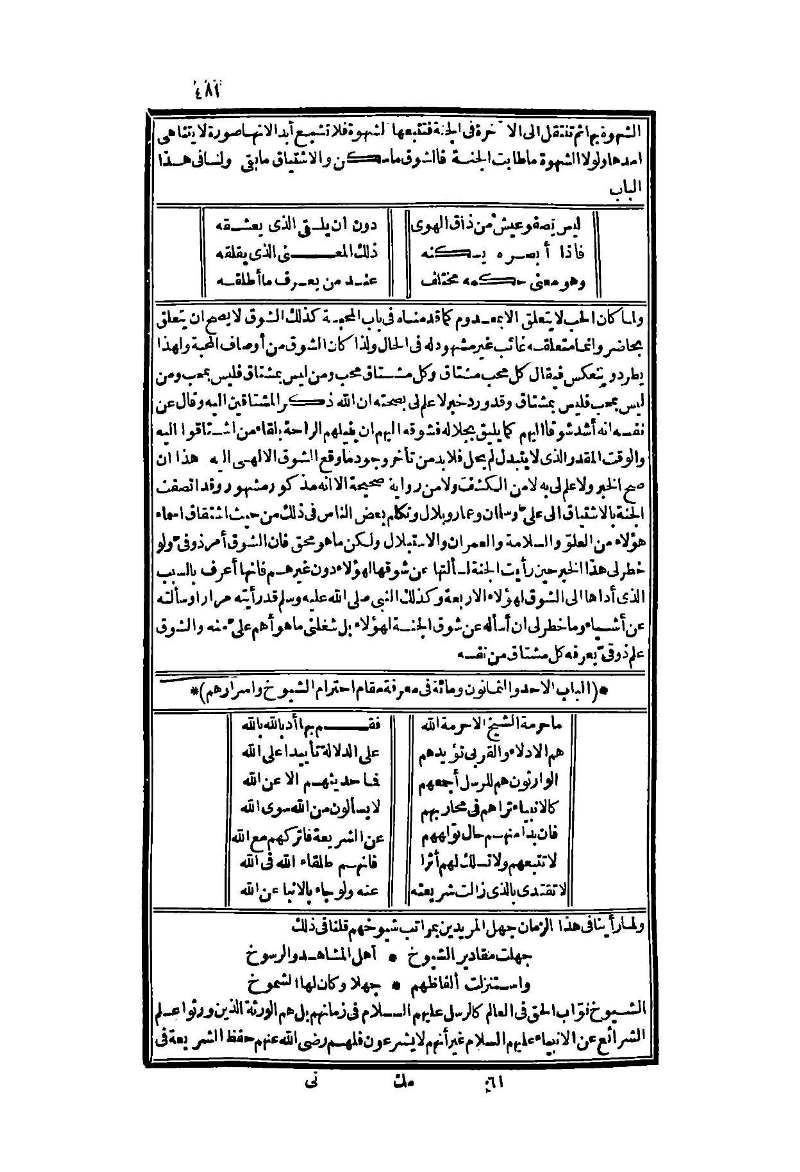 ٤٨١
الشهوة بها ثم تنتقل الى الآخرة فى الجنة فتتبعها الشهوة فلا تشبع أبد الانها صورة لا يتناهى
امدها ولولا الشهوة ما طابت الجنة فالشوق ما سكن والاشتياق ما بقى ولنا فى هذا
الباب
ليس يصفو عيش من ذاق الهوى دون ان يلقى الذى يعشقه
فاذا أبصره يسكنه ذلك المعنى الذى يقلقه
وهو معنى حكمه مختلف عند من يعرف ما أطلقه
ولما كان الحب لا يتعلق الا بمعدوم كما قدمناه فى باب المحبة كذلك الشوق لا يصح ان يتعلق
بحاضر وانما متعلقه غائب غير مشهود له فى الحال ولذا كان الشوق من أوصاف المحبة ولهذا
يطرد وينعكس فيقال كل محب مشتاق وكل مشتاق محب ومن ليس بمشتاق فليس بمحب ومن
ليس بمحب فليس بمشتاق وقد ورد خبر لا علم لى بصحته ان الله ذكر المشتاقين اليه وقال عن
نفسه انه أشد شوقا اليهم كما يليق بجلاله فشوقه اليهم ان ينيلهم الراحة بلقاء من اشتاقوا اليه
والوقت المقدر الذى لا يتبدل لم يحل فلا بد من تأخر وجود ما وقع الشوق الالهى اليه هذا ان
صح الخبر ولا علم لى به لا من الكشف ولا من رواية صحيحة الا انه مذكور مشهور وقد اتصفت
الجنة بالاشتياق الى علىّ وسلمان وعمار وبلال وتكلم بعض الناس فى ذلك من حيث اشتقاق اسماء
هؤلاء من العلوّ والسلامة والعمران والاستبلال ولكن ما هو محق فان الشوق أمر ذوقىّ ولو
خطر لى هذا الخبر حين رأيت الجنة لسألتها عن شوقها لهؤلاء دون غيرهم فانها أعرف بالسبب
الذى أداها الى الشوق لهؤلاء الاربعة وكذلك النبى صلى الله عليه وسلم قد رأيته مرارا وسألته
عن أشياء وما خطر لى ان أسأله عن شوق الجنة لهؤلاء بل شغلنى ما هو أهم علىّ منه والشوق
علم ذوقىّ يعرفه كل مشتاق من نفسه
* (الباب الاحد والثمانون ومائة فى معرفة مقام احترام الشيوخ واسرارهم) *
ما حرمة الشيخ الا حرمة الله فقم بها أدبا لله بالله
هم الادلاء والقربى تؤيدهم على الدلالة تأييدا على الله
الوارثون هم للرسل أجمعهم فما حديثهم الا عن الله
كالانبياء تراهم فى محاربهم لا يسألون من الله سوى الله
فان بدا منهم حال تولههم عن الشريعة فاتركهم مع الله
لا تتبعهم ولا تسلك لهم أثرا فانهم طلقاء الله فى الله
لا تقتدى بالذى زالت شريعته عنه ولو جاء بالانبا عن الله
ولما رأينا فى هذا الزمان جهل المريدين بمراتب شيوخهم قلنا فى ذلك
جهلت مقادير الشيوخ * أهل المشاهد والرسوخ
واستنزلت ألفاظهم * جهلا وكان لها الشموخ
الشيوخ نوّاب الحق فى العالم كالرسل عليهم السلام فى زمانهم بل هم الورثة الذين ورثوا علم
الشرائع عن الانبياء عليهم السلام غير أنهم لا يشرعون فلهم رضى الله عنهم حفظ الشريعة فى
٦١ مك نى